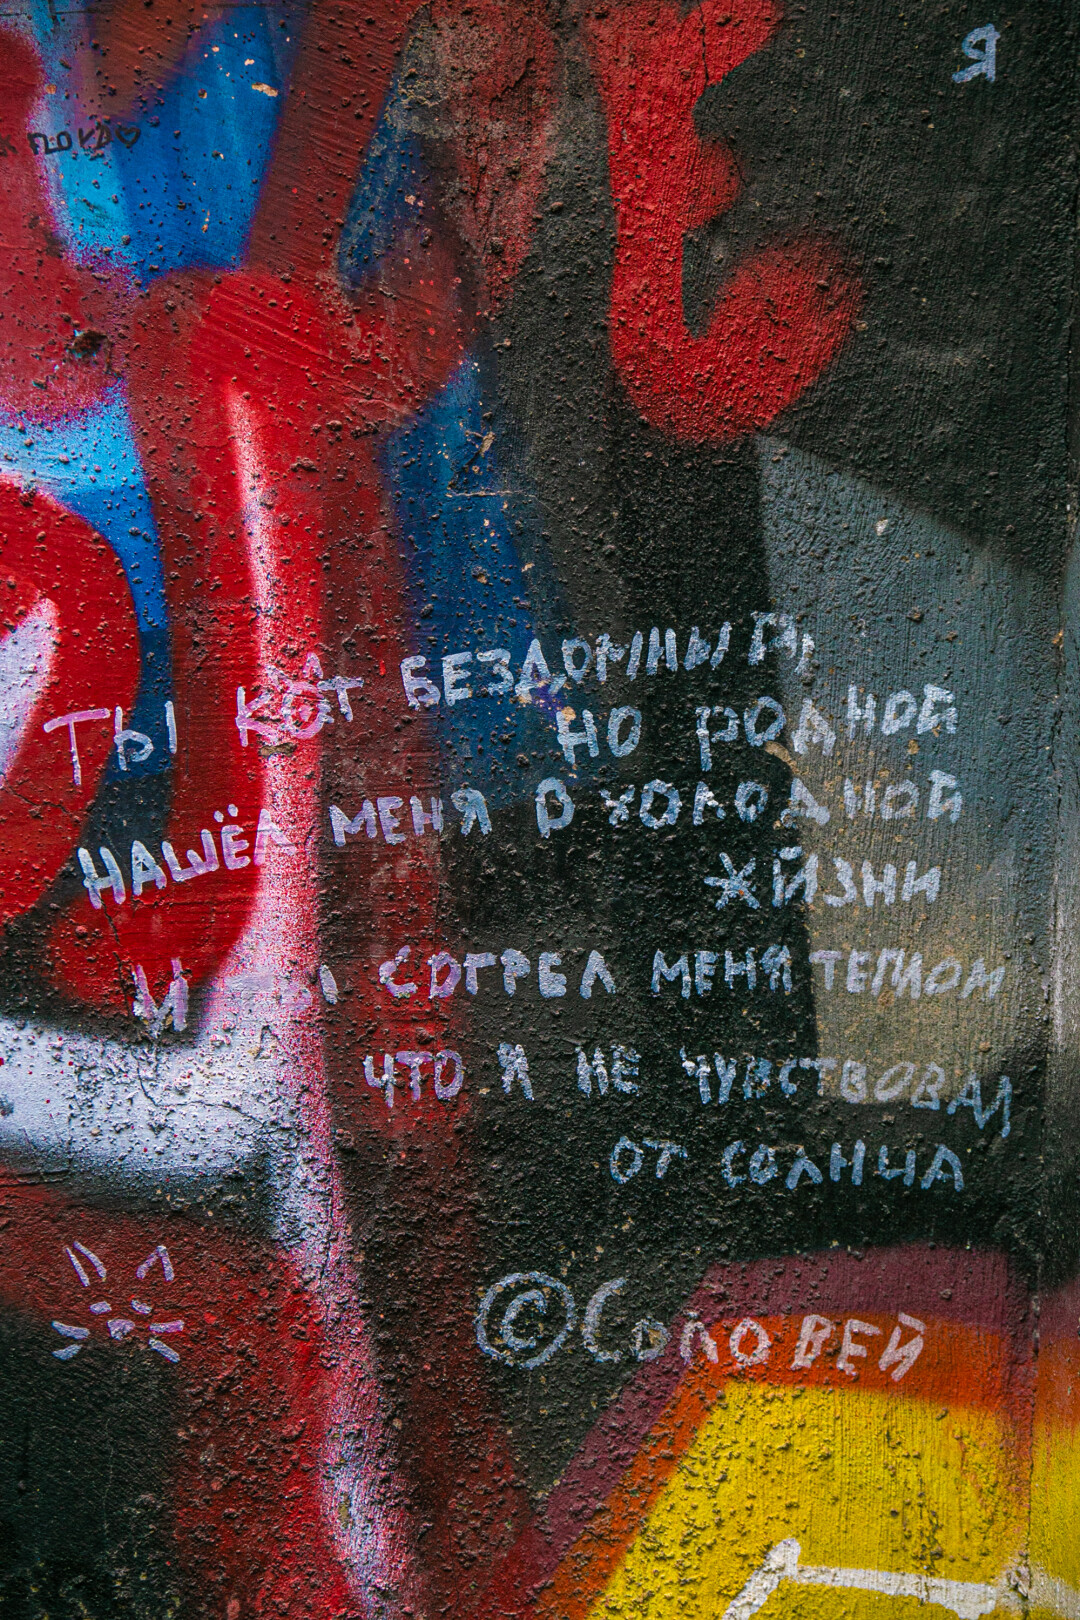 Я
ТЫ КОТ БЕЗДОМНЫЙ,
НО РОДНОЙ
НАШЁЛ МЕНЯ В ХОЛОДНОЙ
ЖИЗНИ
И ТЫ СОГРЕЛ МЕНЯ ТЕПЛОМ
ЧТО Я НЕ ЧУВСТВОВАЛ
ОТ СОЛНЦА
©СОЛОВЕЙ